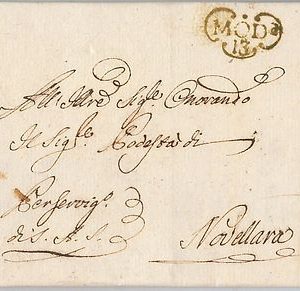 MOD.a
13
All' Illre Sigr Onorando
Il Sigr Podestà di
Per servigo
di S. A. S.
Novellara